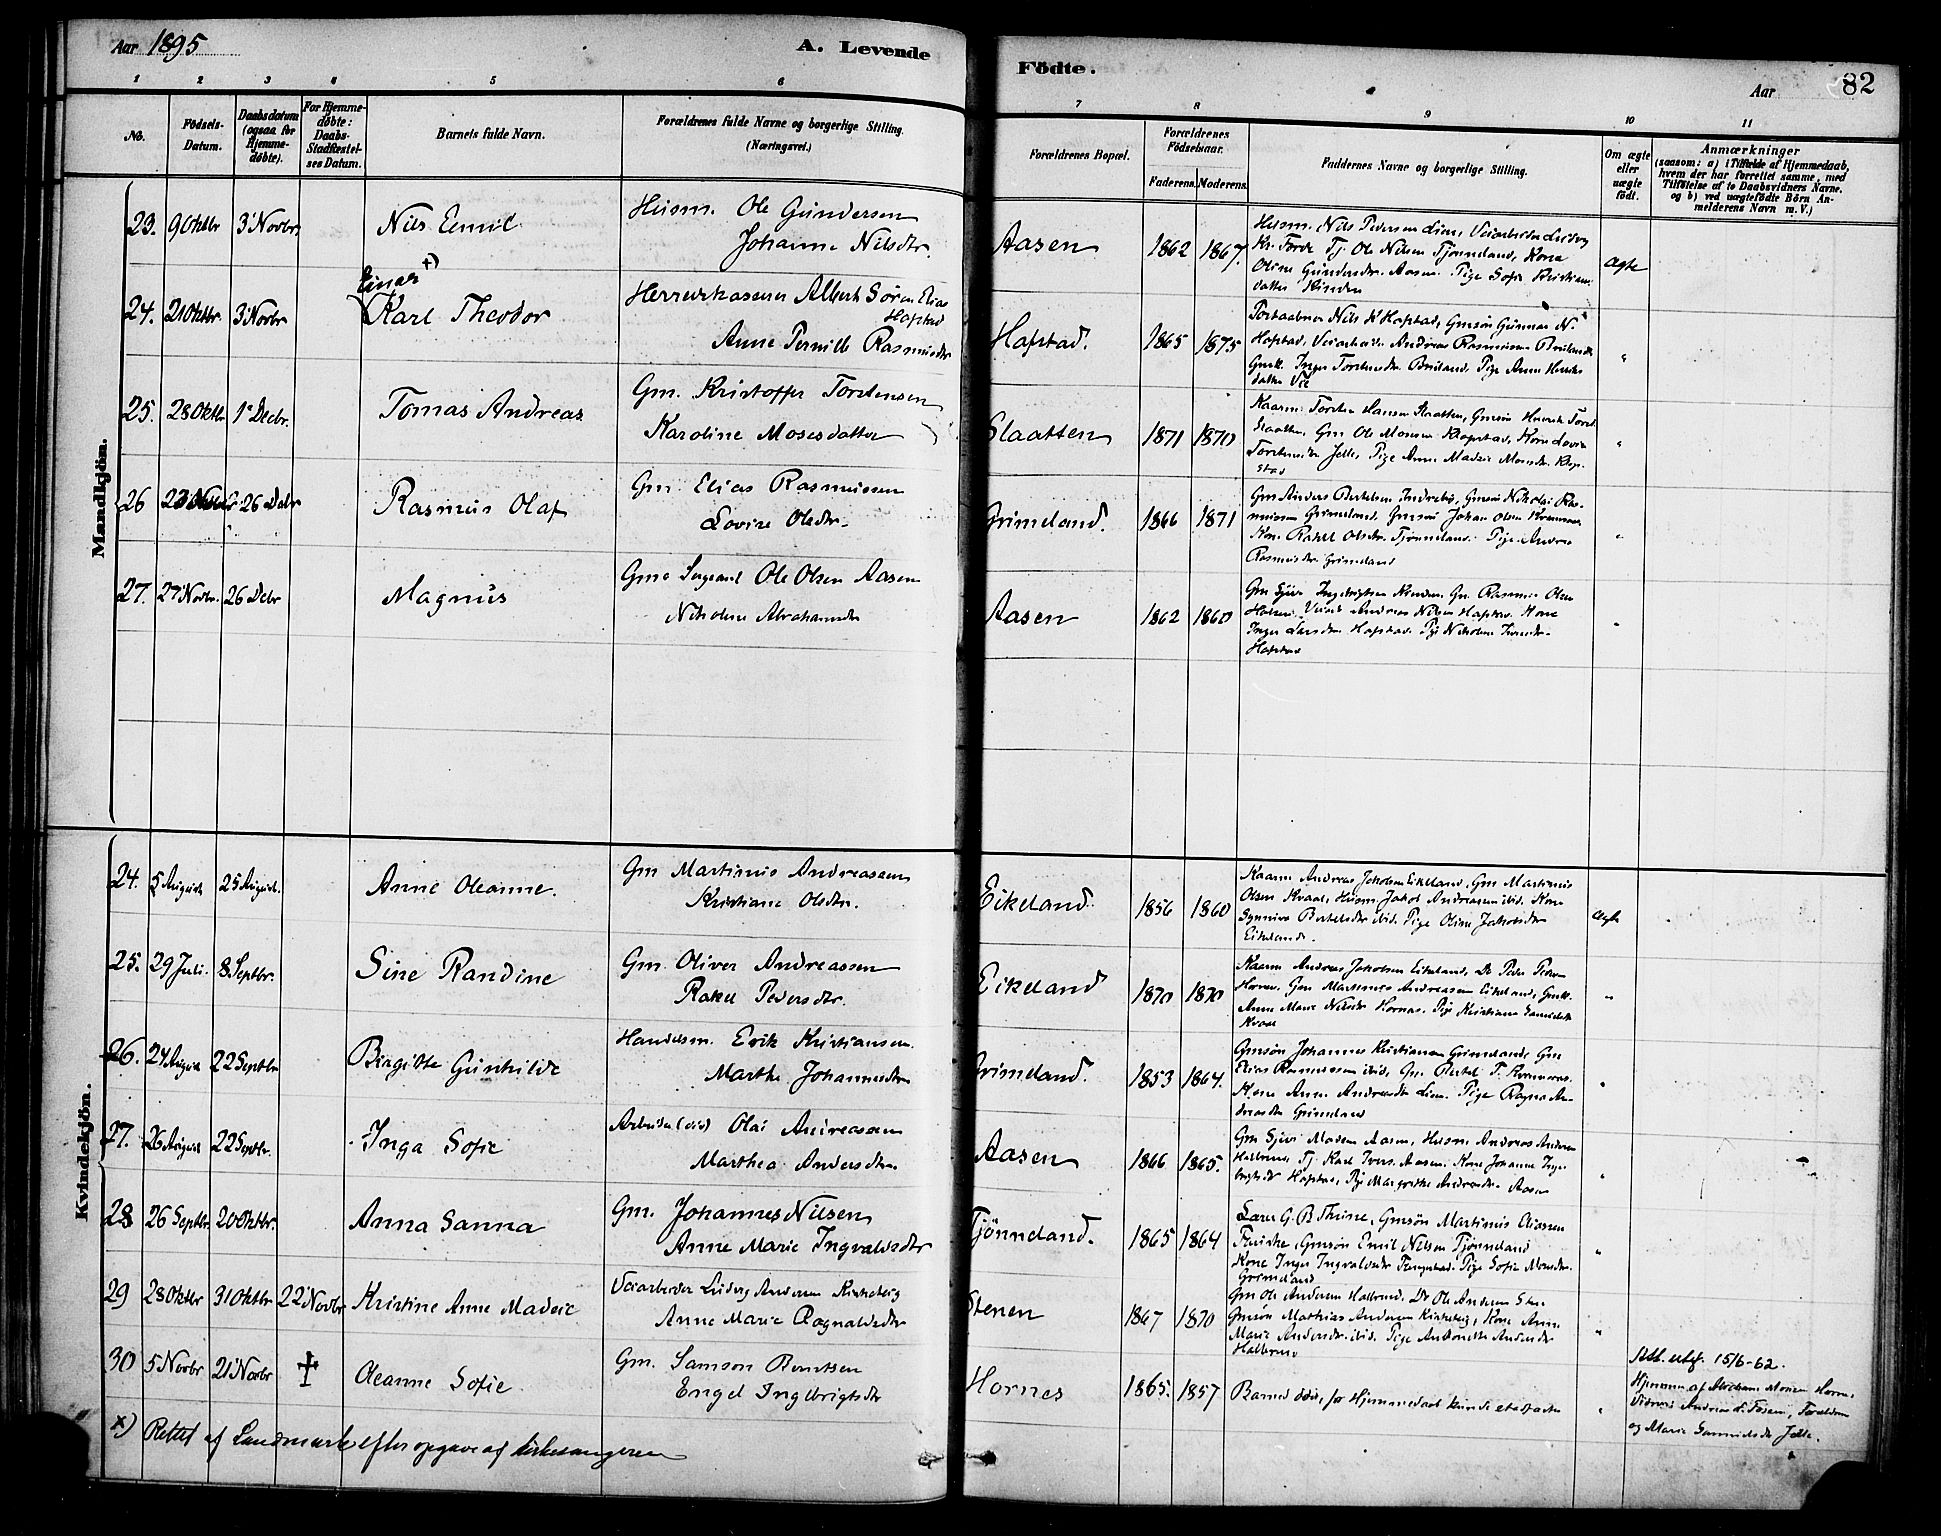 Aar 1895
A. Levende
Födte.
Aar
82
1 2 3 4 5 6
7 8 9 10 11
No.
Födsels-
Datum.
Daabsdatum
(ogsaa for
Hjemme-
döbte).
For Hjemme-
döbte:
Daabs-
Stadfæstel-
ses Datum.
Barnets fulde Navn.
Forældrenes fulde Navne og borgerlige Stilling.
(Næringsvei.)
Forældrenes Bopæl.
Forældrenes
Födselsaar.
Faderens. Moderens.
Faddernes Navne og borgerlige Stilling.
Om ægte
eller
uægte
födt.
Anmærkninger
(saasom: a) i Tilfælde af Hjemmedaab,
hvem der har forrettet samme, med
Tilföielse af to Daabsvidners Navne.
og b) ved uægtefödte Börn An-
melderens Navn m. V.)
Mandkjön.
23. 9 Oktbr 3 Novbr. Nils Emil
Husm. Ole Gundersen
Johanne Nilsdtr.
Aasen 1862 1867.
Husm. Nils Pedersen Lien, Veiarbeider Ludvig
Kr. Förde Tj. Ole Nilsen Tjönneland, Kone
Oline Gundersdtr. Aasen. Pige Sofie Kristians
datter
Ægte
Einar x)
24. 21 Oktbr 3 Novbr Karl Theodor
Herredskasserer Albert Sören Elias
Hafstad
Anne Pernille Rasmusdtr
Hafstad. 1865 1875
Nils Hafstad, Gmsön Gunnar N.
Hafstad, Veiarbeider Andreas Rasmussen Bruland
Gmk. Inger Bruland, Pige Anne
datter Vie
"
25. 28 Oktbr 1 Decbr. Tomas Andreas
Gm. Kristoffer Torstensen
Karoline Mosesdatter
Slaatten 1871 1870
Kaarm. Torsten Hansen Slaatten, Gmsön Henrik Torst.
Slaatten, Gm Ole Monsen Klopstad, Kone Lovise
Jelle, Pige Anne Madsie Monsdtr. Klop-
stad
"
26 26 Decbr Rasmus Olaf
Gm. Elias Rasmussen
Lovise Olsdtr.
Grimeland. 1866 1871
Gm Anders Bertelsen Indrebö, Gmsön Nikolai Ras-
mussen Grimeland, Gmsön Johan Olsen
Kone Rakel Olsdtr. Tjönneland. Pige Andrea
Rasmusdtr. Grimeland
"
27. 27 Novbr. 26 Decbr Magnus
Gm. Sergeant Ole Olsen Aasen
Nikoline Abrahamsdtr
Aasen 1862 1860
Gm Sjur Ingebrigtsen Gm. Rasmus Olsen
Andreas Nilsen Hafstad. Kone
Inger Larsdtr Hafstad. Pige Nikoline
Hafstad
"
Kvindekjön.
24. 5 August 25 August. Anne Oleanne.
Gm Martinus Andreassen
Kristiane Olsdtr.
Eikeland. 1856 1860
Kaarm Andreas Jakobsen Eikeland, Gm Martinus
Olsen Kvaal, Husm Jakob Andreassen ibid. Kone
Synnive Bertelsdtr ibid. Pige Oline Jakobsdtr
Eikeland.
Ægte
25. 29 Juli. 8 Septbr. Sine Randine
Gm. Oliver Andreassen
Rakel Pedersdtr.
Eikeland 1870 1870
Kaarm Andreas Jakobsen Eikeland, Do Peder Pedersen
Hornes. Gm Martinus Andreassen Eikeland, Gmk.
Anne Marie Nilsdtr Hornes. Pige Kristiane Samuelsdtr
Kvaal
"
26. 24 August 22 Septbr Birgitte Gunhilde
Handelsm. Erik Kristiansen.
Marthe Johannesdtr
Grimeland. 1853 1864.
Gmsön Johannes Kristiansen Grimeland, Gm
Elias Rasmussen ibid, Gm. Bertel T.
Kone Anne Andreasdtr Lien. Pige Ragna An-
dreasdtr Grimeland
"
27. 26 August 22 Septbr. Inga Sofie
Arbeider (vei) Olai Andreassen
Marthea Andersdtr.
Aasen 1866 1865.
Gm Sjur Madsen Aasen, Husm Andreas Andersen
Halbrend, Tj. Karl Ivers. Aasen, Kone Johanne Inge-
brigtsdtr Hafstad, Pige Margrethe Andreasdtr. Aasen
"
28 26 Septbr. 20 Oktbr. Anna Sanna
Gm. Johannes Nilsen
Anne Marie Ingvaldsdtr
Tjönneland. 1865 1864
Lærer G. B. Thune, Gmsön Martinus Eliassen
Gmsön Emil Nilsen Tjönneland
Kone Inger Ingvaldsdtr Pige Sofie Monsdtr.
Grimeland
"
29 28 Oktbr 31 Oktbr 22 Novbr Kristine Anne Madsie
Veiarbeider Ludvig Andersen Kirkeberg
Anne Marie Rognaldsdtr
Stenen 1867 1870
Gm Ole Andersen Halbrend. Do Ole Andersen Sten
Gmsön Mathias Andersen Kirkeberg, Kone Anne
Marie Andersdtr. ibid. Pige Antonette Andersdtr
Halbrend
"
30 5 Novbr 21 Novbr † Oleanne Sofie.
Gm. Samson Berntsen
Engel Ingebrigtsdtr
Hornes 1865. 1857
Barnet döde, før Hjemmedaab kunde stadfæstes
"
Att. utst. 15/6-62.
Hjemmed. af Abraham Monsen Hornes
Vidner: Andreas
og Marie Samuelsdtr Jelle.
x) Rettet af Landmark efter opgave af kirkesangeren